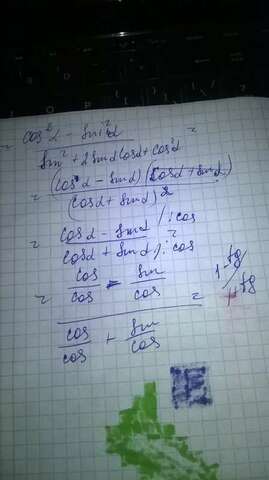 = cos²α - sin²α =
sin² + 2sinα cosα + cos²α
(cos α - sinα)(cosα + sinα)
(cosα + sinα)²
= cosα - sinα /:cos =
cosα + sinα /:cos
= cos/cos - sin/cos = 1-tg
cos/cos + sin/cos 1+tg